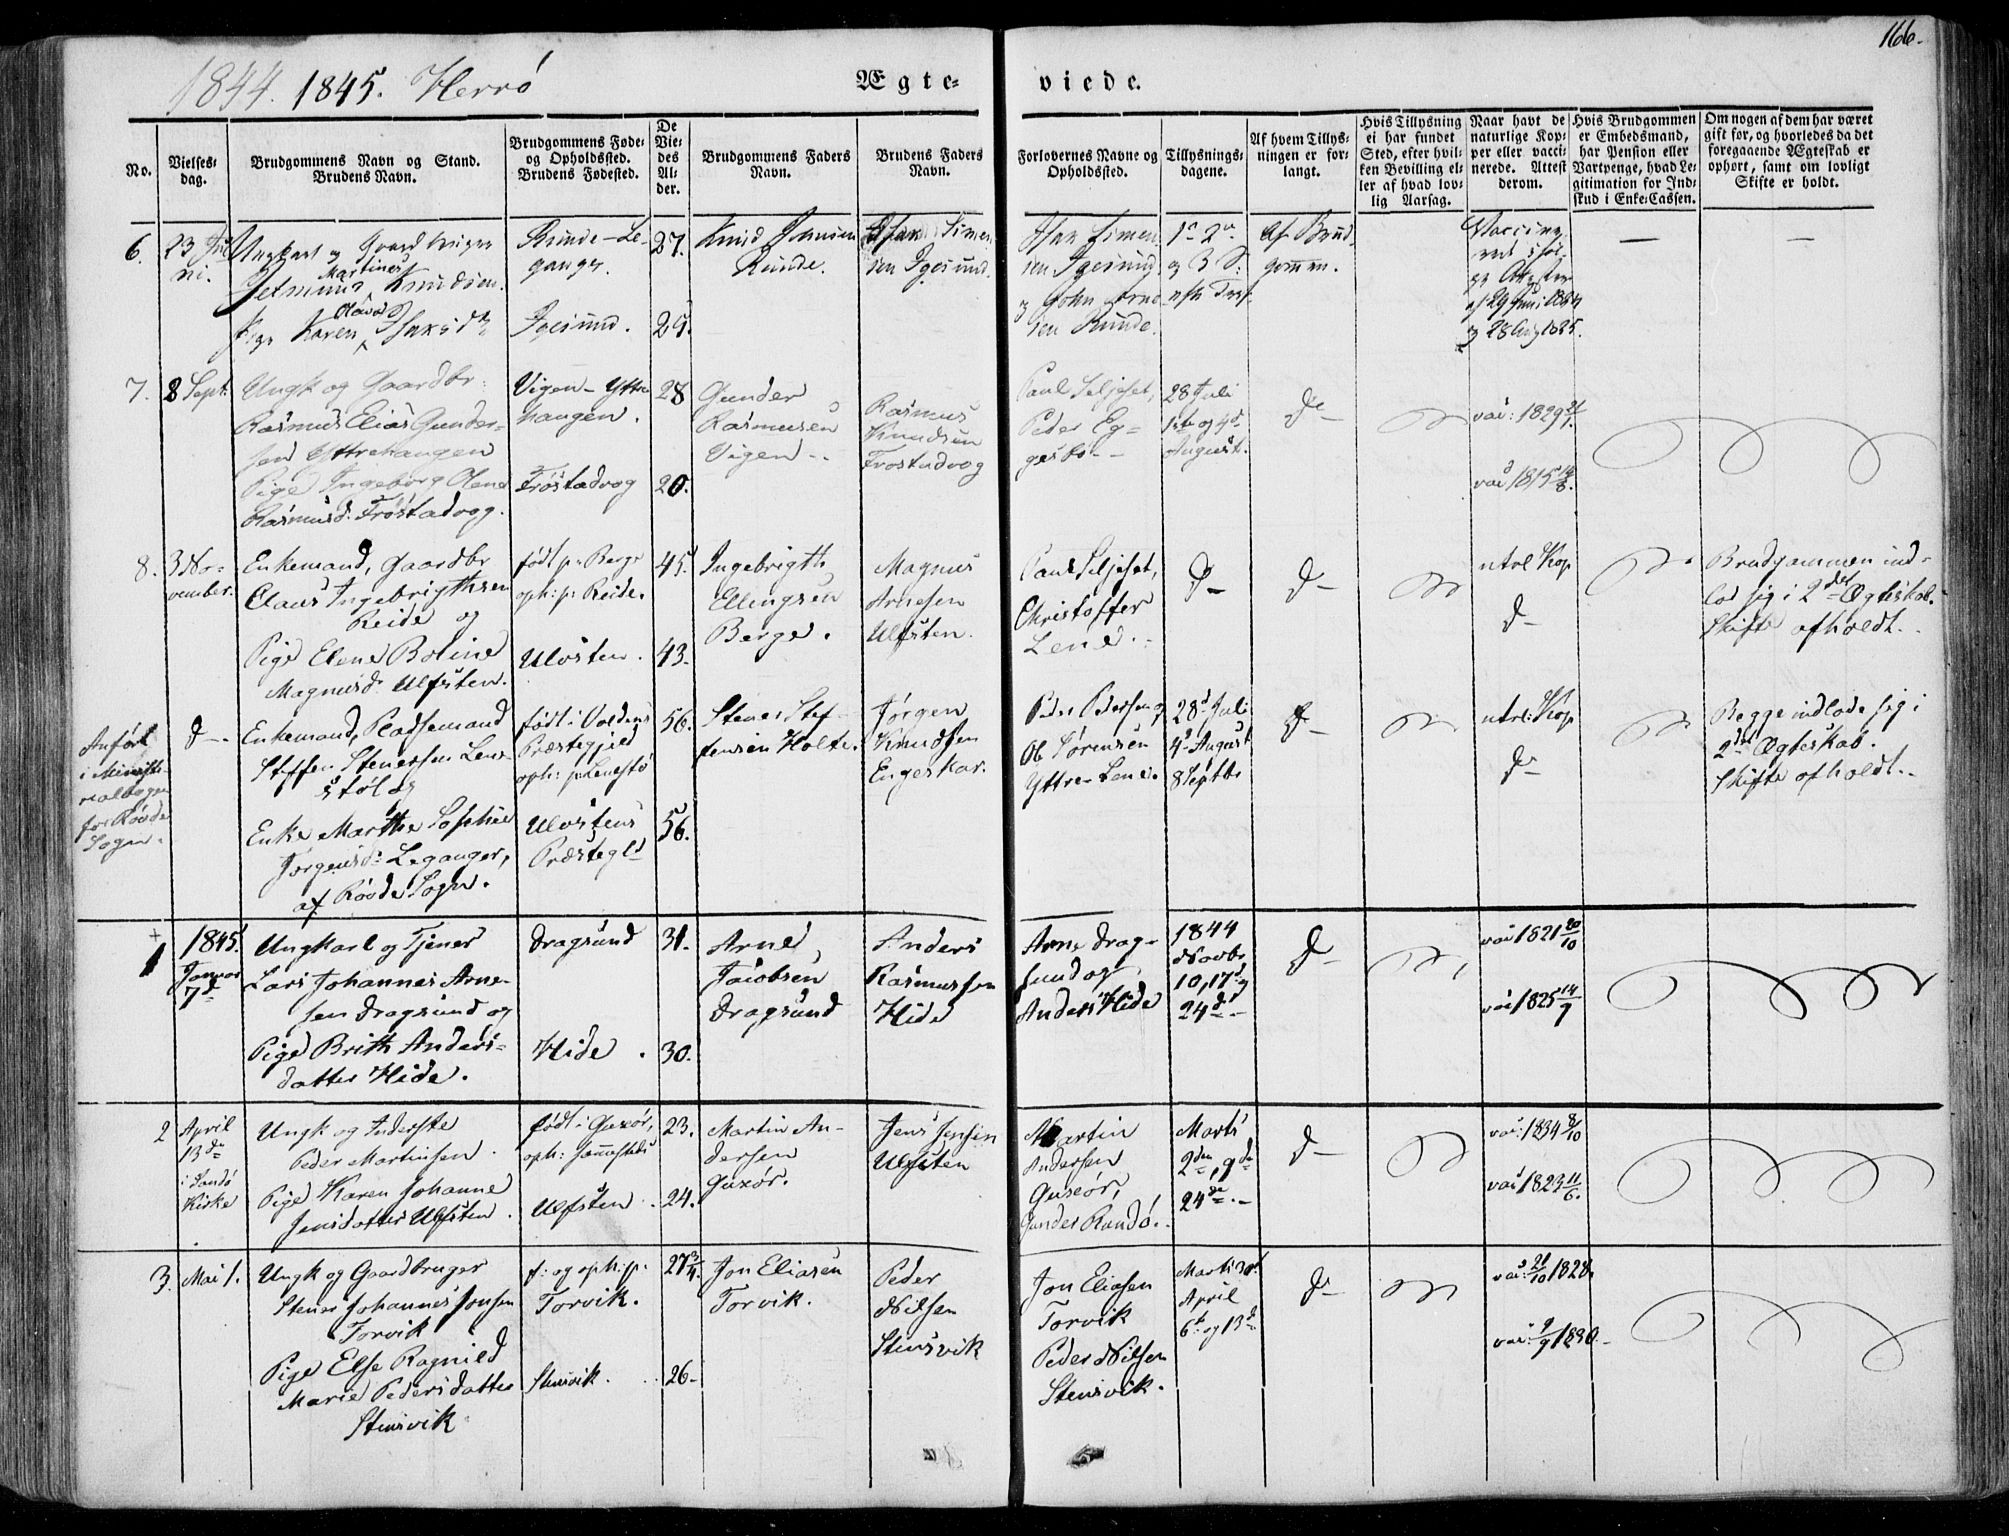 166.
1844. 1845. Herrö
Ægte-
viede.
No.
Vielses-
dag.
Brudgommens Navn og Stand.
Brudens Navn.
Brudgommens Føde-
og Opholdssted.
Brudens Fødested.
De
Vie-
des
Al-
der.
Brudgommens Faders
Navn.
Brudens Faders
Navn.
Forlovernes Navne og
Opholdssted.
Tillysnings-
dagene.
Af hvem Tillys-
ningen er for-
langt.
Hvis Tillysning
ei har fundet
Sted, efter hvil-
ken Bevilling el-
ler af hvad lov-
lig Aarsag.
Naar havt de
naturlige Kop-
per eller vacci-
nerede. Attest
derom.
Hvis Brudgommen
er Embedsmand,
har Pension eller
Vartpenge, hvad Le-
gitimation for Ind-
skud i Enke-Cassen.
Om nogen af dem har været
gift før, og hvorledes da det
foregaaende Ægteskab er
ophørt, samt om lovligt
Skifte er holdt.
6.
23 Ju-
ni.
Ungkarl og Gaardbruger
Martinus
Knudsen.
Pige Karen Isaksd
Runde - Le-
ganger.
Igesund.
27.
Knud
Runde.
Isak Simen-
sen Igesund.
Isak Simen-
sen Igesund
og John
sen Runde.
1e 2e
og 3 S:
Af Brud-
gommen.
Vaccine-
rede
Attester
af 29 Juni 1824
og 28 Aug 1825.
—
—
7.
8 Sept.
Ungk og Gaardbr:
Rasmus Elias Gunder-
sen Yttrehaugen
Pige Ingeborg Olene
Rasmusd: Fröstadvog.
Vigen - Yttre
haugen.
Fröstadvog
28
20.
Gunder
Rasmusen
Vigen -
Rasmus
Knudsen
Frostadvog
Paul Seljeset,
Peder Eg-
gesbö -
28 Juli
og 4d
August.
do
vac: 1829
vac 1815
8.
3 No-
vember.
Enkemand, Gaardbr
Claus Ingebrigthsen
Reide og
Pige Elene Boline
Magnusd: Ulfsten.
födt p: Berge
oph: p: Reide.
Ulvsten.
45.
43.
Ingebrigth
Ellingsen
Berge.
Magnus
Arnesen
Ulfsten.
Paul Seljeset,
Christoffer
Lene.
do
do
ntrl Kop
do
Brudgommen ind-
lod sig i 2det Ægteskab.
Skifte afholdt.
Anfört
i Ministe-
rialbogen
for Rövde
Sogn.
do
Enkemand, Pladsemand
Steffen Stenersen Lene-
stöl og
Enke Marthe Sophie
Jörgensd: Leganger,
af Rövde Sogn.
födt i Voldens
Præstegjeld
oph: p: Lenestö
Ulvstens
Præstegld
56.
56.
Stener Stef-
fensen Holte.
Jörgen
Knudsen
Engeskar.
Peder Pedersen og
Ol Sörensen
Yttre-Lene.
28d Juli
4d August
8 Septbr
do
ntrl: Kop
do
Begge indlode sig i
2det Ægteskab.
Skifte afholdt.
1
1845.
Januar
7d
Ungkarl og Tjener
Lars Johannes Arne-
sen Dragsund og
Pige Brith Anders-
datter Hide.
Dragsund
Hide.
31.
30.
Arne
Jacobsen
Dragsund
Anders
Rasmussen
Hide
Arne Drag-
sund og
Anders Hide
1844
Novbr
10, 17d og
24de
do
vac 1821 20/10
vac 1825 14/9
2
April
13de
i Sandö
Kirke
Ungk og Inderste
Peder Martinsen.
Pige Karen Johanne
Jensdatter Ulfsten.
födt i Gurör,
oph:
Ulfsten.
23.
24.
Martin An-
dersen
Gurör.
Jens Jensen
Ulfsten
Martin
Andersen
Gurör,
Gunder Randö.
Marts
2den, 9de
24de.
do
vac: 1834 8/10
vac 1823 11/6.
3.
Mai 1.
Ungk og Gaardbruger
Stener Johannes Jonsen
Torvik
Pige Else Ragnild
Marie Pedersdatter
Stensvik
f: og oph: p:
Torvik.
Stensvik.
27 3/4.
26.
Jon Eliasen
Torvik.
Peder
Nilsen
Stensvik
Jon Eliasen
Torvik
Peder Nilsen
Stensvik.
Marts 30
April
6te og 13de
do
vac: 21/10 1828
vac: 9/9 1830.